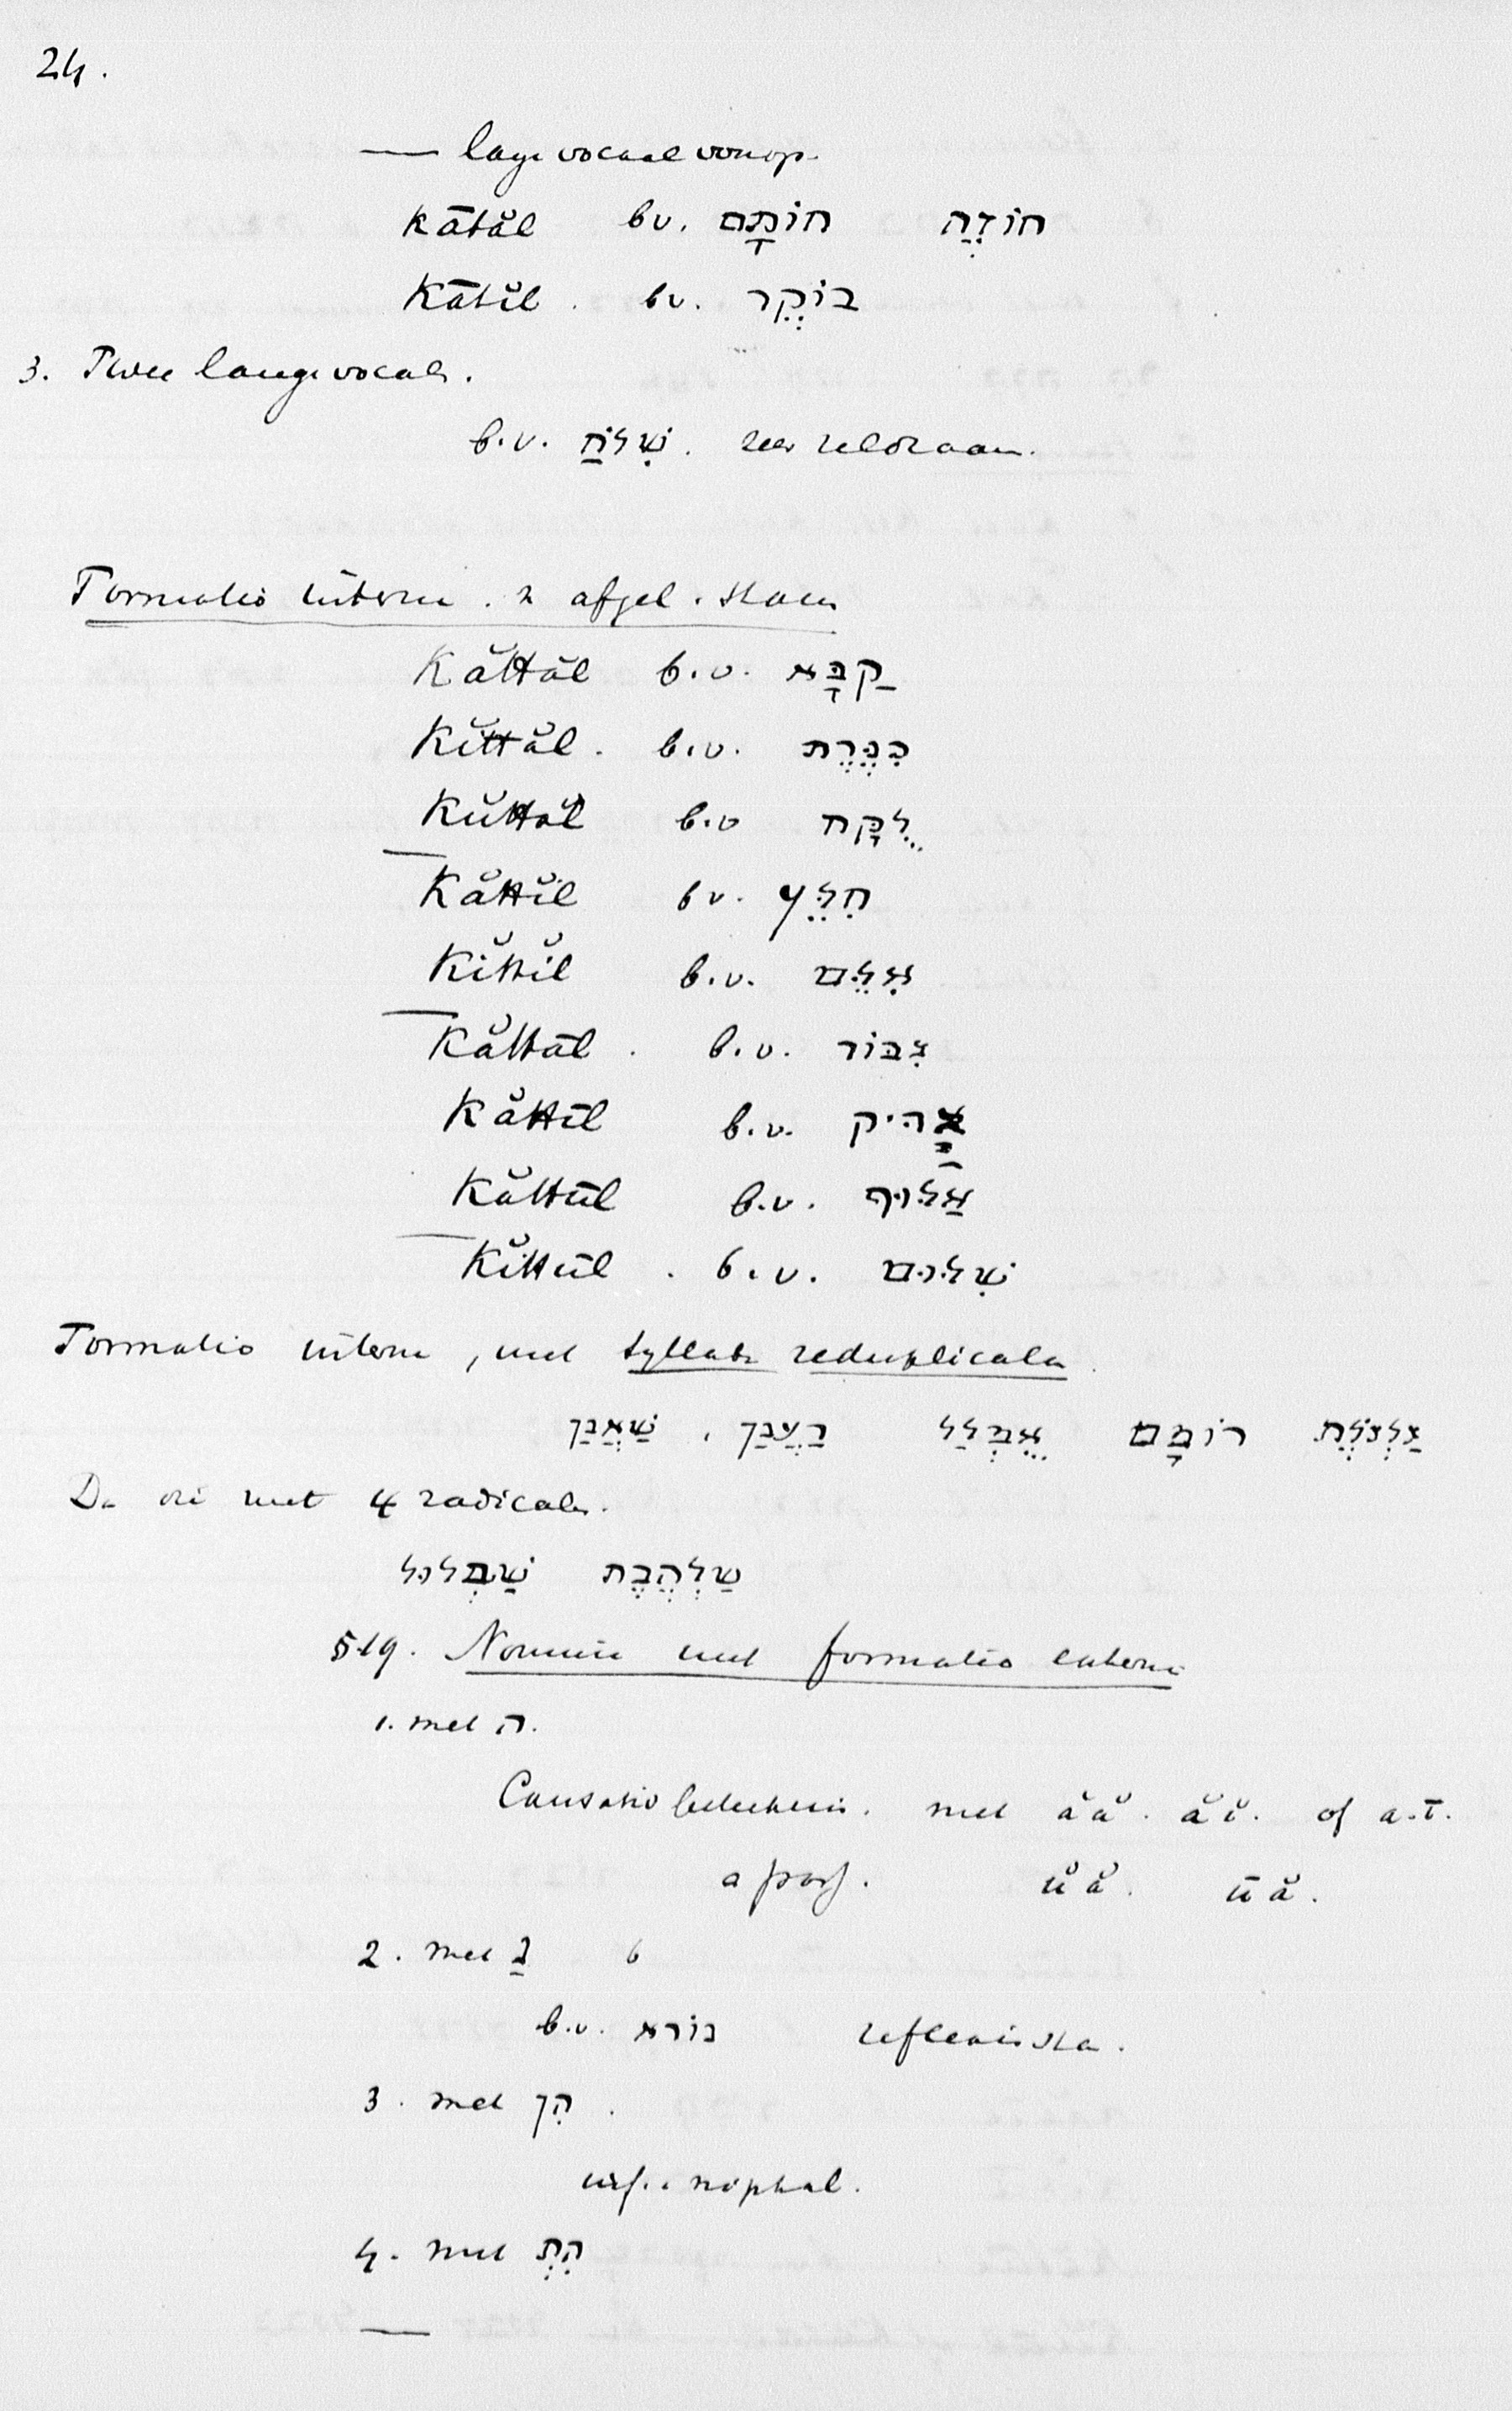 24.
— lange vocaal voorop.
Kātăl b.v. חוֹתָּם חוֹזֶה
Kātĭl. b.v. בוֹקֵר
3. Twee lange vocals.
b.v. שִׁלוֹחַ. zeer zeldzaam.
Formatio interna. v afgel. stam
Kăttăl b.v. קַבָּא
Kĭttăl. b.v. כִּפֶּרֶת
Kŭttăl b.v לֻקָּח
Kăttĭl b.v. חִלֵּץ
Kĭttĭl b.v. אִלֵּם
Kăttāl. b.v. גִּבּוֹר
Kăttīl b.v.
Kăttūl b.v. אַלּוּף
Kĭttūl. b.v. שִׁלּוּם
Formatio interna, met syllaba reduplicata.
צַלְצֶלֶת רוֹמָם אֻמְלַל רַעֲנַן, שַׁאֲנַן
De vi met 4 radicalen.
שַׁלְהֶבֶת שַׁבְּלוּל
§19. Nomina met formatio externa
1. met ה.
Causatieve beteekenis. met ă ă. ă ĭ. of a-ī.
a pass. ŭ ă. ū ă.
2. met נַ
b.v. נורא reflexieve sta.
3. met הִן.
inf. niphal.
4. met הִתְ
—